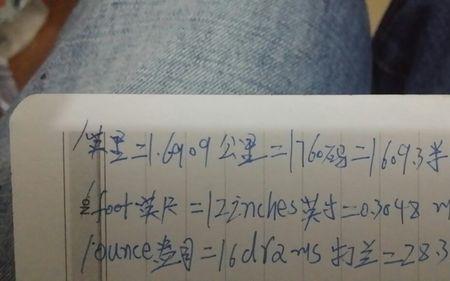 1英里=1.6909公里=1760码=1609.3米
No.
1foot英尺=12inches英寸=0.3048 m
1ounce盎司=16drams打兰=28.3